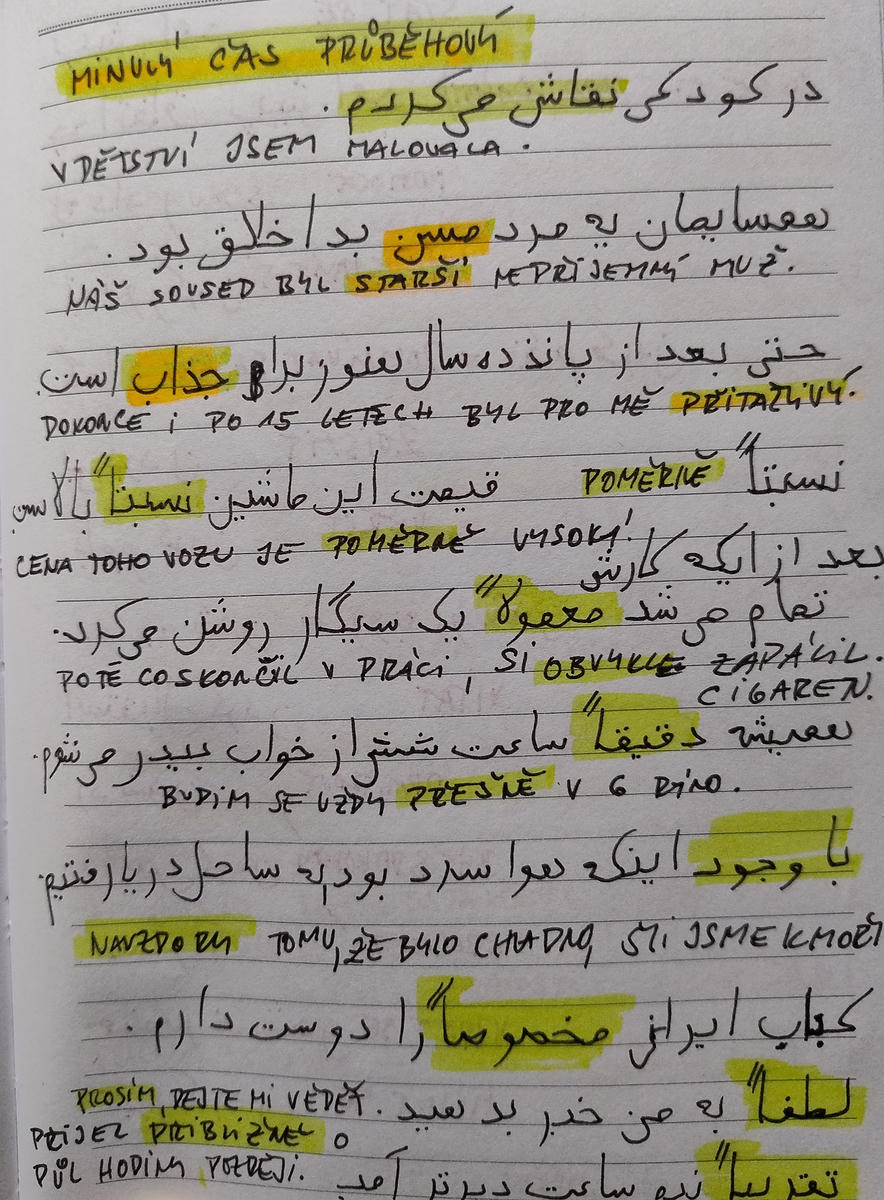 MINULÝ ČAS PRŮBĚHOVÝ
در کودکی نقاشی می‌کردم .
V DĚTSTVÍ JSEM MALOVALA .
همسایمان یه مرد مسن بد اخلاق بود .
NÁŠ SOUSED BYL STARŠÍ NEPŘÍJEMNÝ MUŽ.
حتی بعد از پانزده سال هنوز برا جذاب است
DOKONCE I PO 15 LETECH BYL PRO MĚ PŘITAŽLIVÝ.
نسبتاً POMĚRNĚ قیمت این ماشین نسبتاً بالاس
CENA TOHO VOZU JE POMĚRNĚ VYSOKÁ!
بعد از ایکه کارش
تمام می‌شد معمولاً یک سیگار روشن می‌کرد.
POTÉ CO SKONČIL V PRÁCI, SI OBVYKLE ZAPÁLIL.
CIGARET.
همیشه دقیقاً ساعت شش از خواب بیدر می‌شوم.
BUDÍM SE VŽDY PŘESNĚ V 6 RÁNO.
با وجود اینکه هوا سرد بود، به ساحل دریا رفتیم.
NAVZDORY TOMU, ŽE BYLO CHLADNO, ŠLI JSME K MOŘI
کباب ایرانی مخصوصاً را دوست دارم .
لطفاً به من خبر بدهید .
PROSÍM, DEJTE MI VĚDĚT.
PŘIJEL PŘIBLIŽNĚ O
PŮL HODINY POZDĚJI.
تقریباً ساعت دیرتر آمد